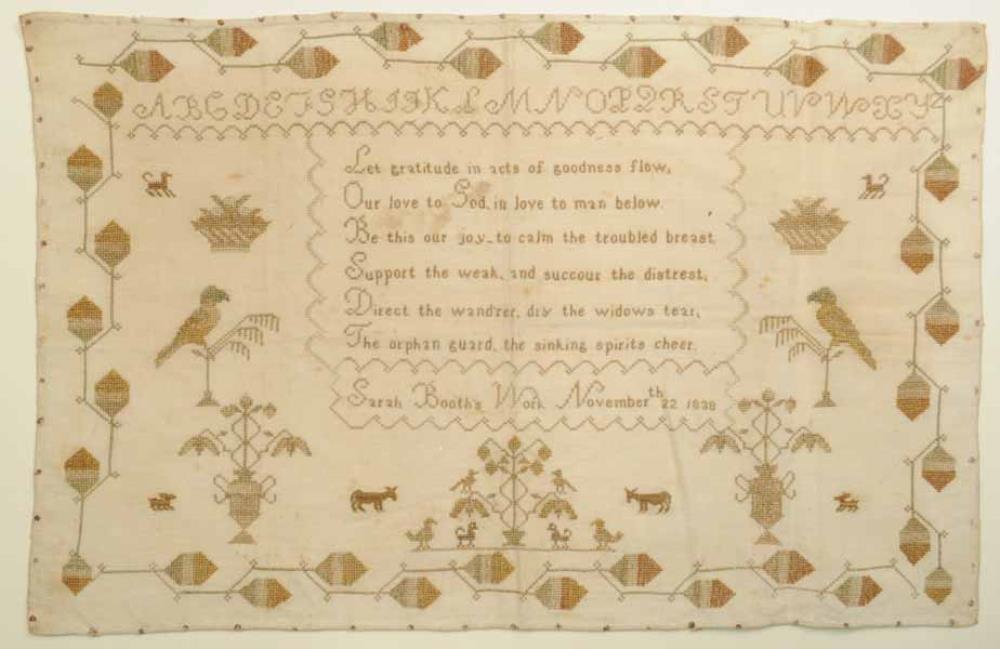 ABCDEFGHIJKLMNOPQRSTUVWXYZ
Let gratitude in acts of goodness flow,
Our love to God, in love to man below.
Be this our joy_to calm the troubled breast,
Support the weak, and succour the distrest,
Direct the wand'rer, dry the widows tear,
The orphan guard, the sinking spirits cheer.
Sarah Booth's Work November 22th 1838